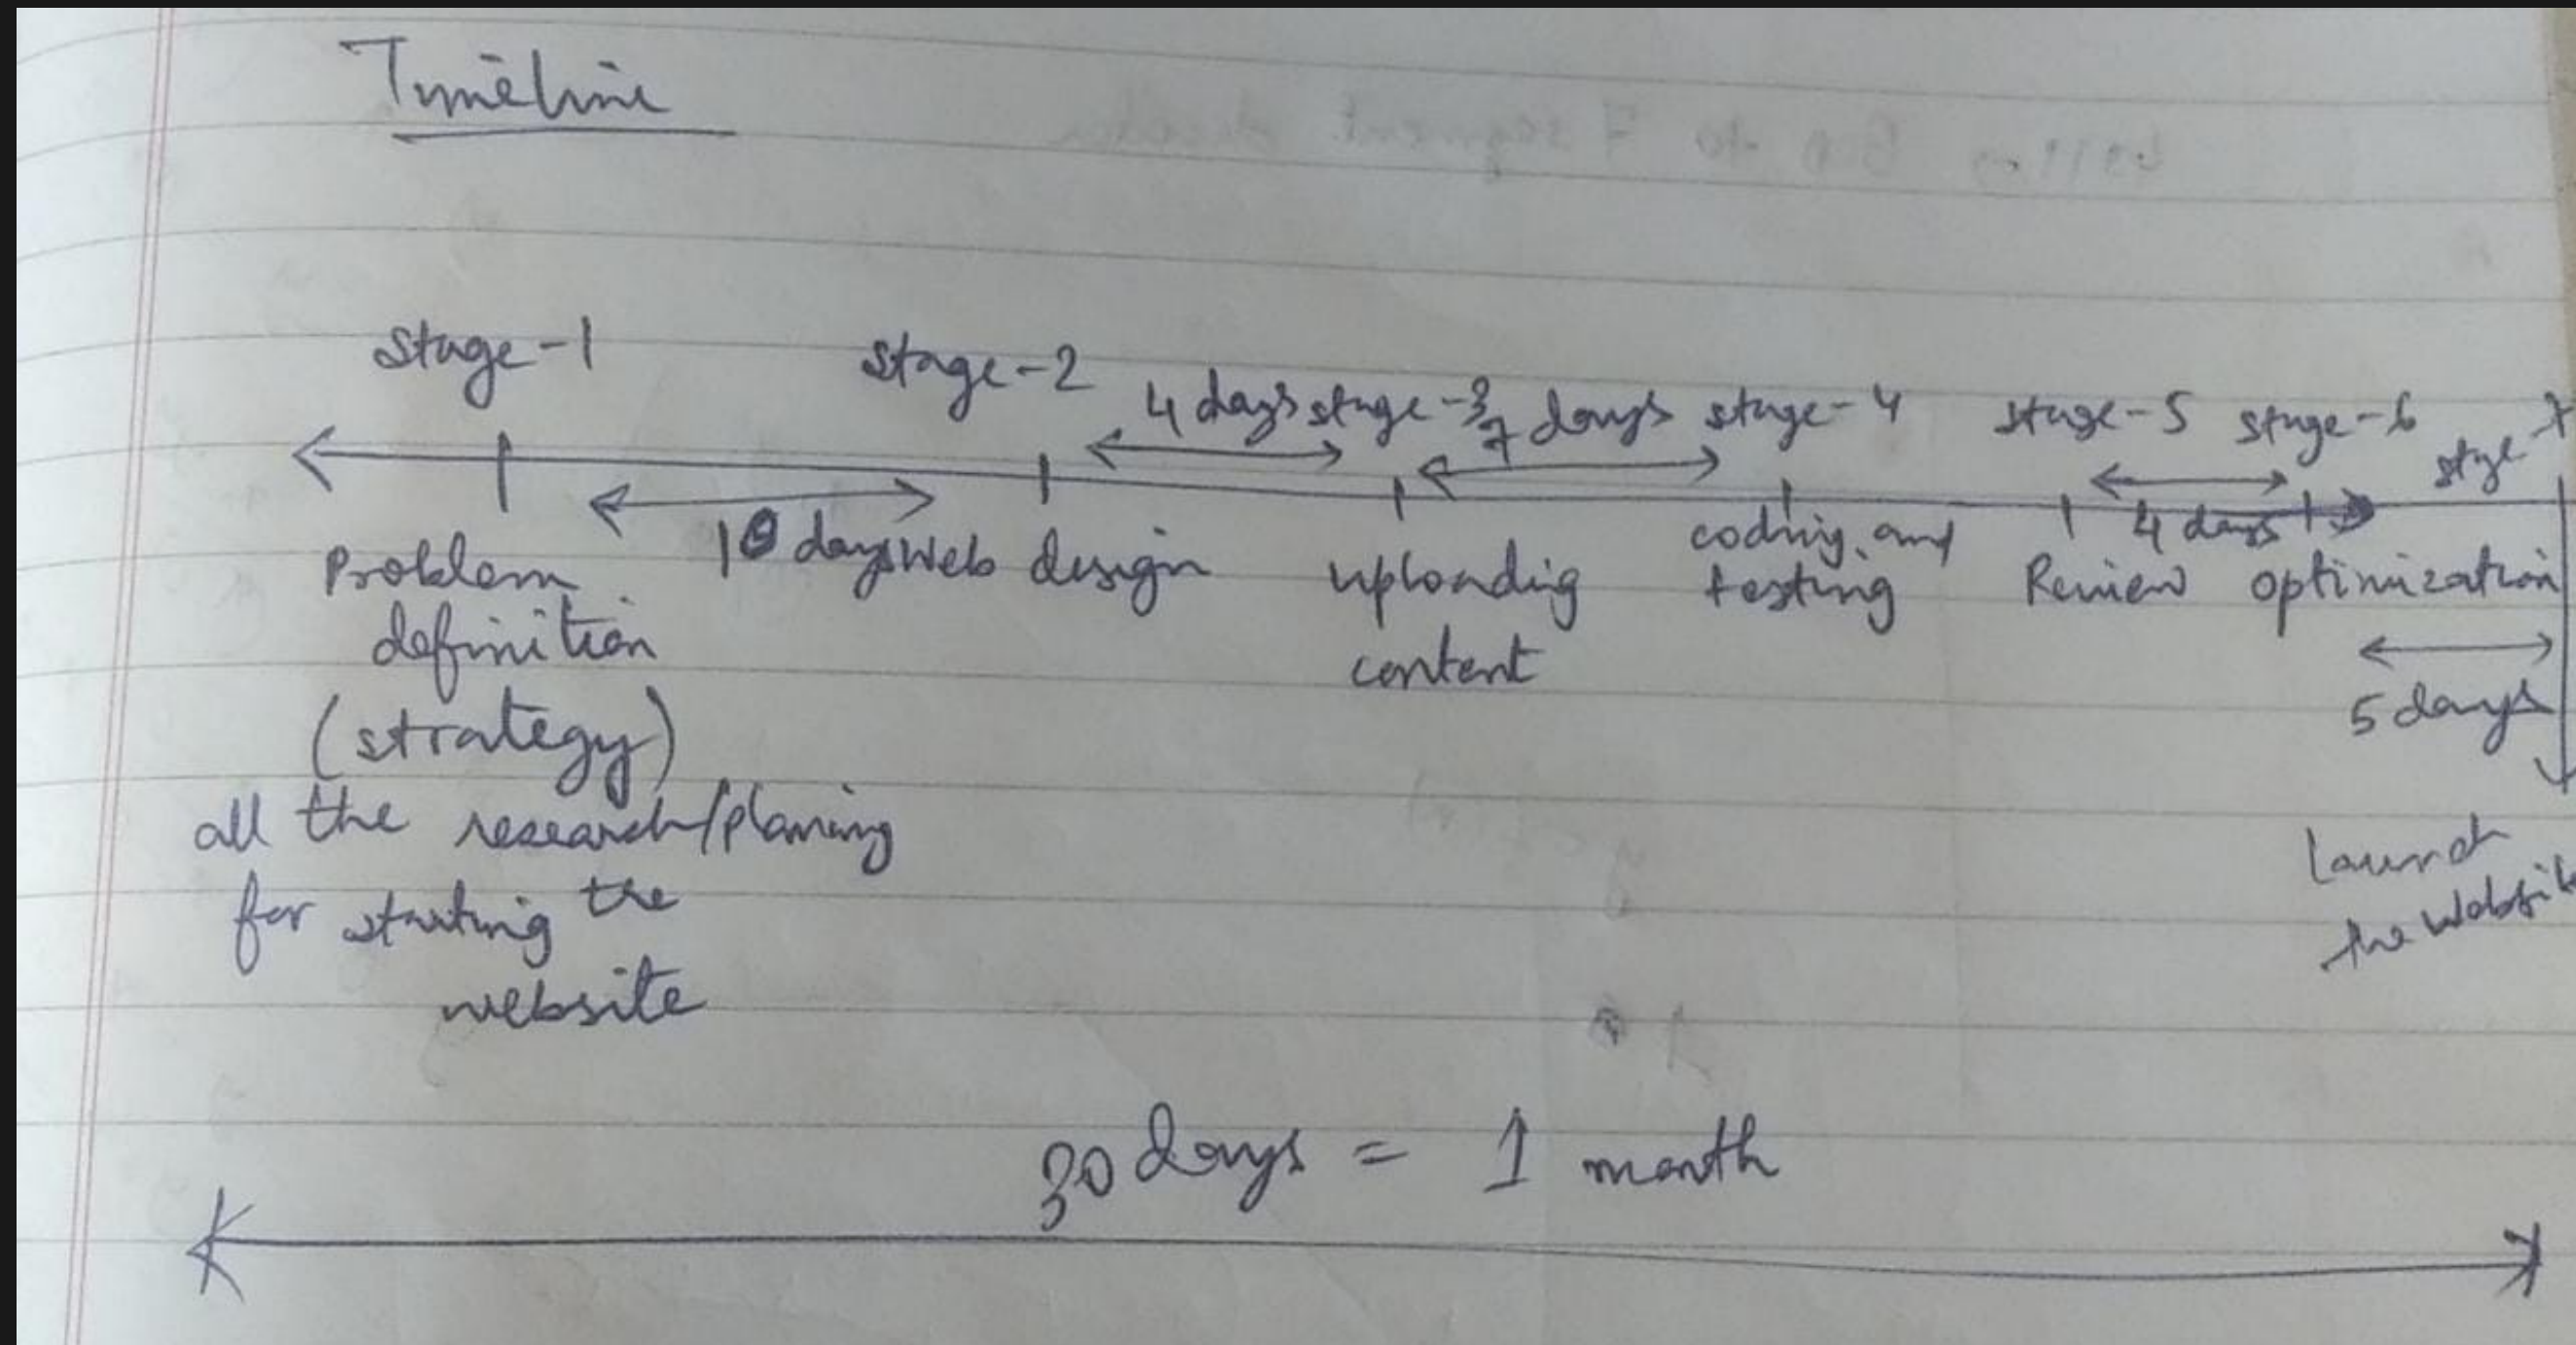 Timeline
Stage-1 stage-2 4 days stage-3 7 days stage-4 stage-5 stage-6 stage
10 days 4 days
Problem definition (strategy)
all the research/planing
for starting the
website
Web design
uploading
content
coding and
testing
Review
optimization
5 days
Launch
the Website
30 days = 1 month